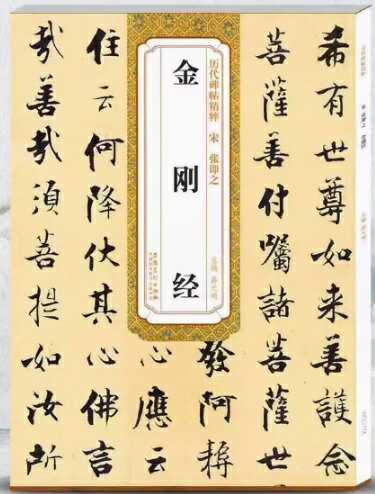 希有世尊如来善護念
菩薩善付囑諸菩薩世
發阿耨
心應云
住云何降伏其心佛言
哉善哉須菩提如汝所
历代碑帖精粹 宋 张即之
金刚经
主编 薛元明